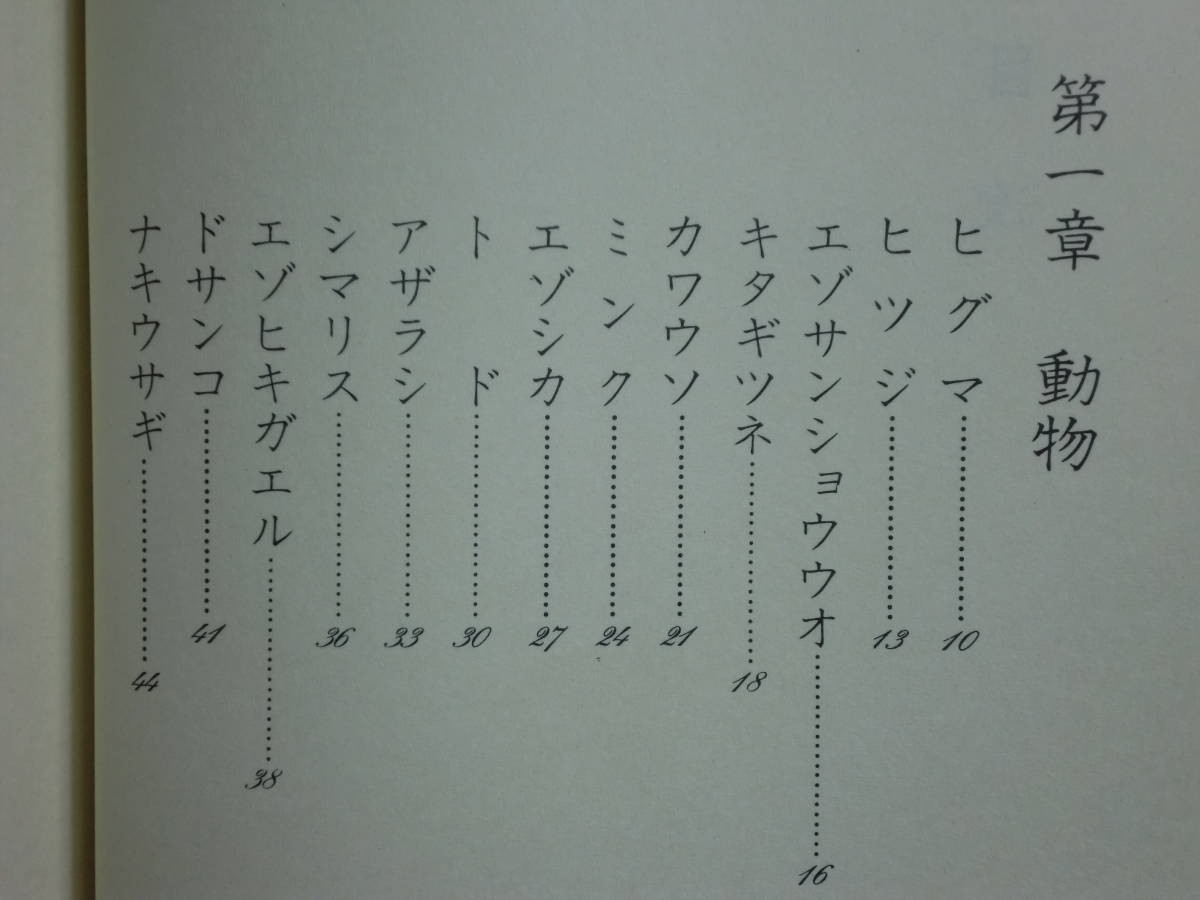 第一章　動物
ヒグマ………………10
ヒツジ………………13
エゾサンショウウオ………………16
キタギツネ………………18
カワウソ………………21
ミンク………………24
エゾシカ………………27
トド………………30
アザラシ………………33
シマリス………………36
エゾヒキガエル………………38
ドサンコ………………41
ナキウサギ………………44